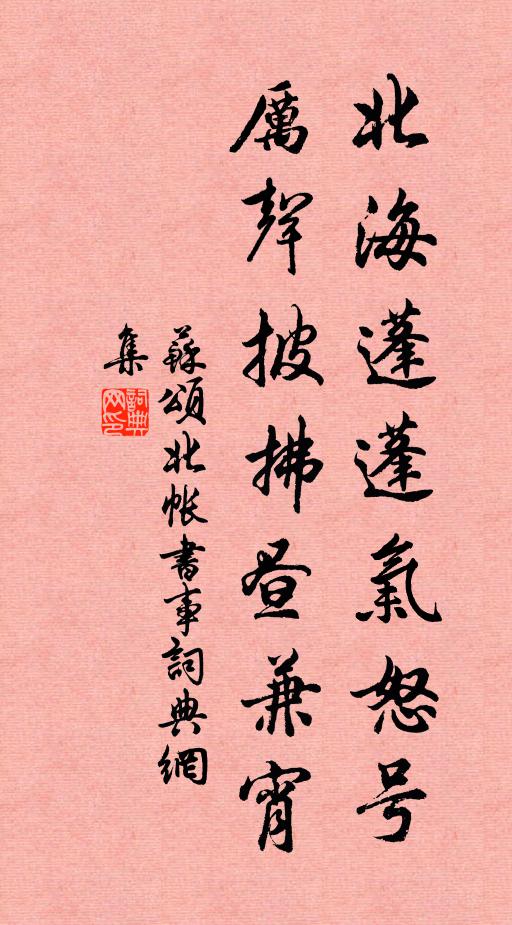 北海蓬蓬氣怒号
厲聲披拂昼兼宵
蘇頌北帐書事詞典網
集
詞典網印